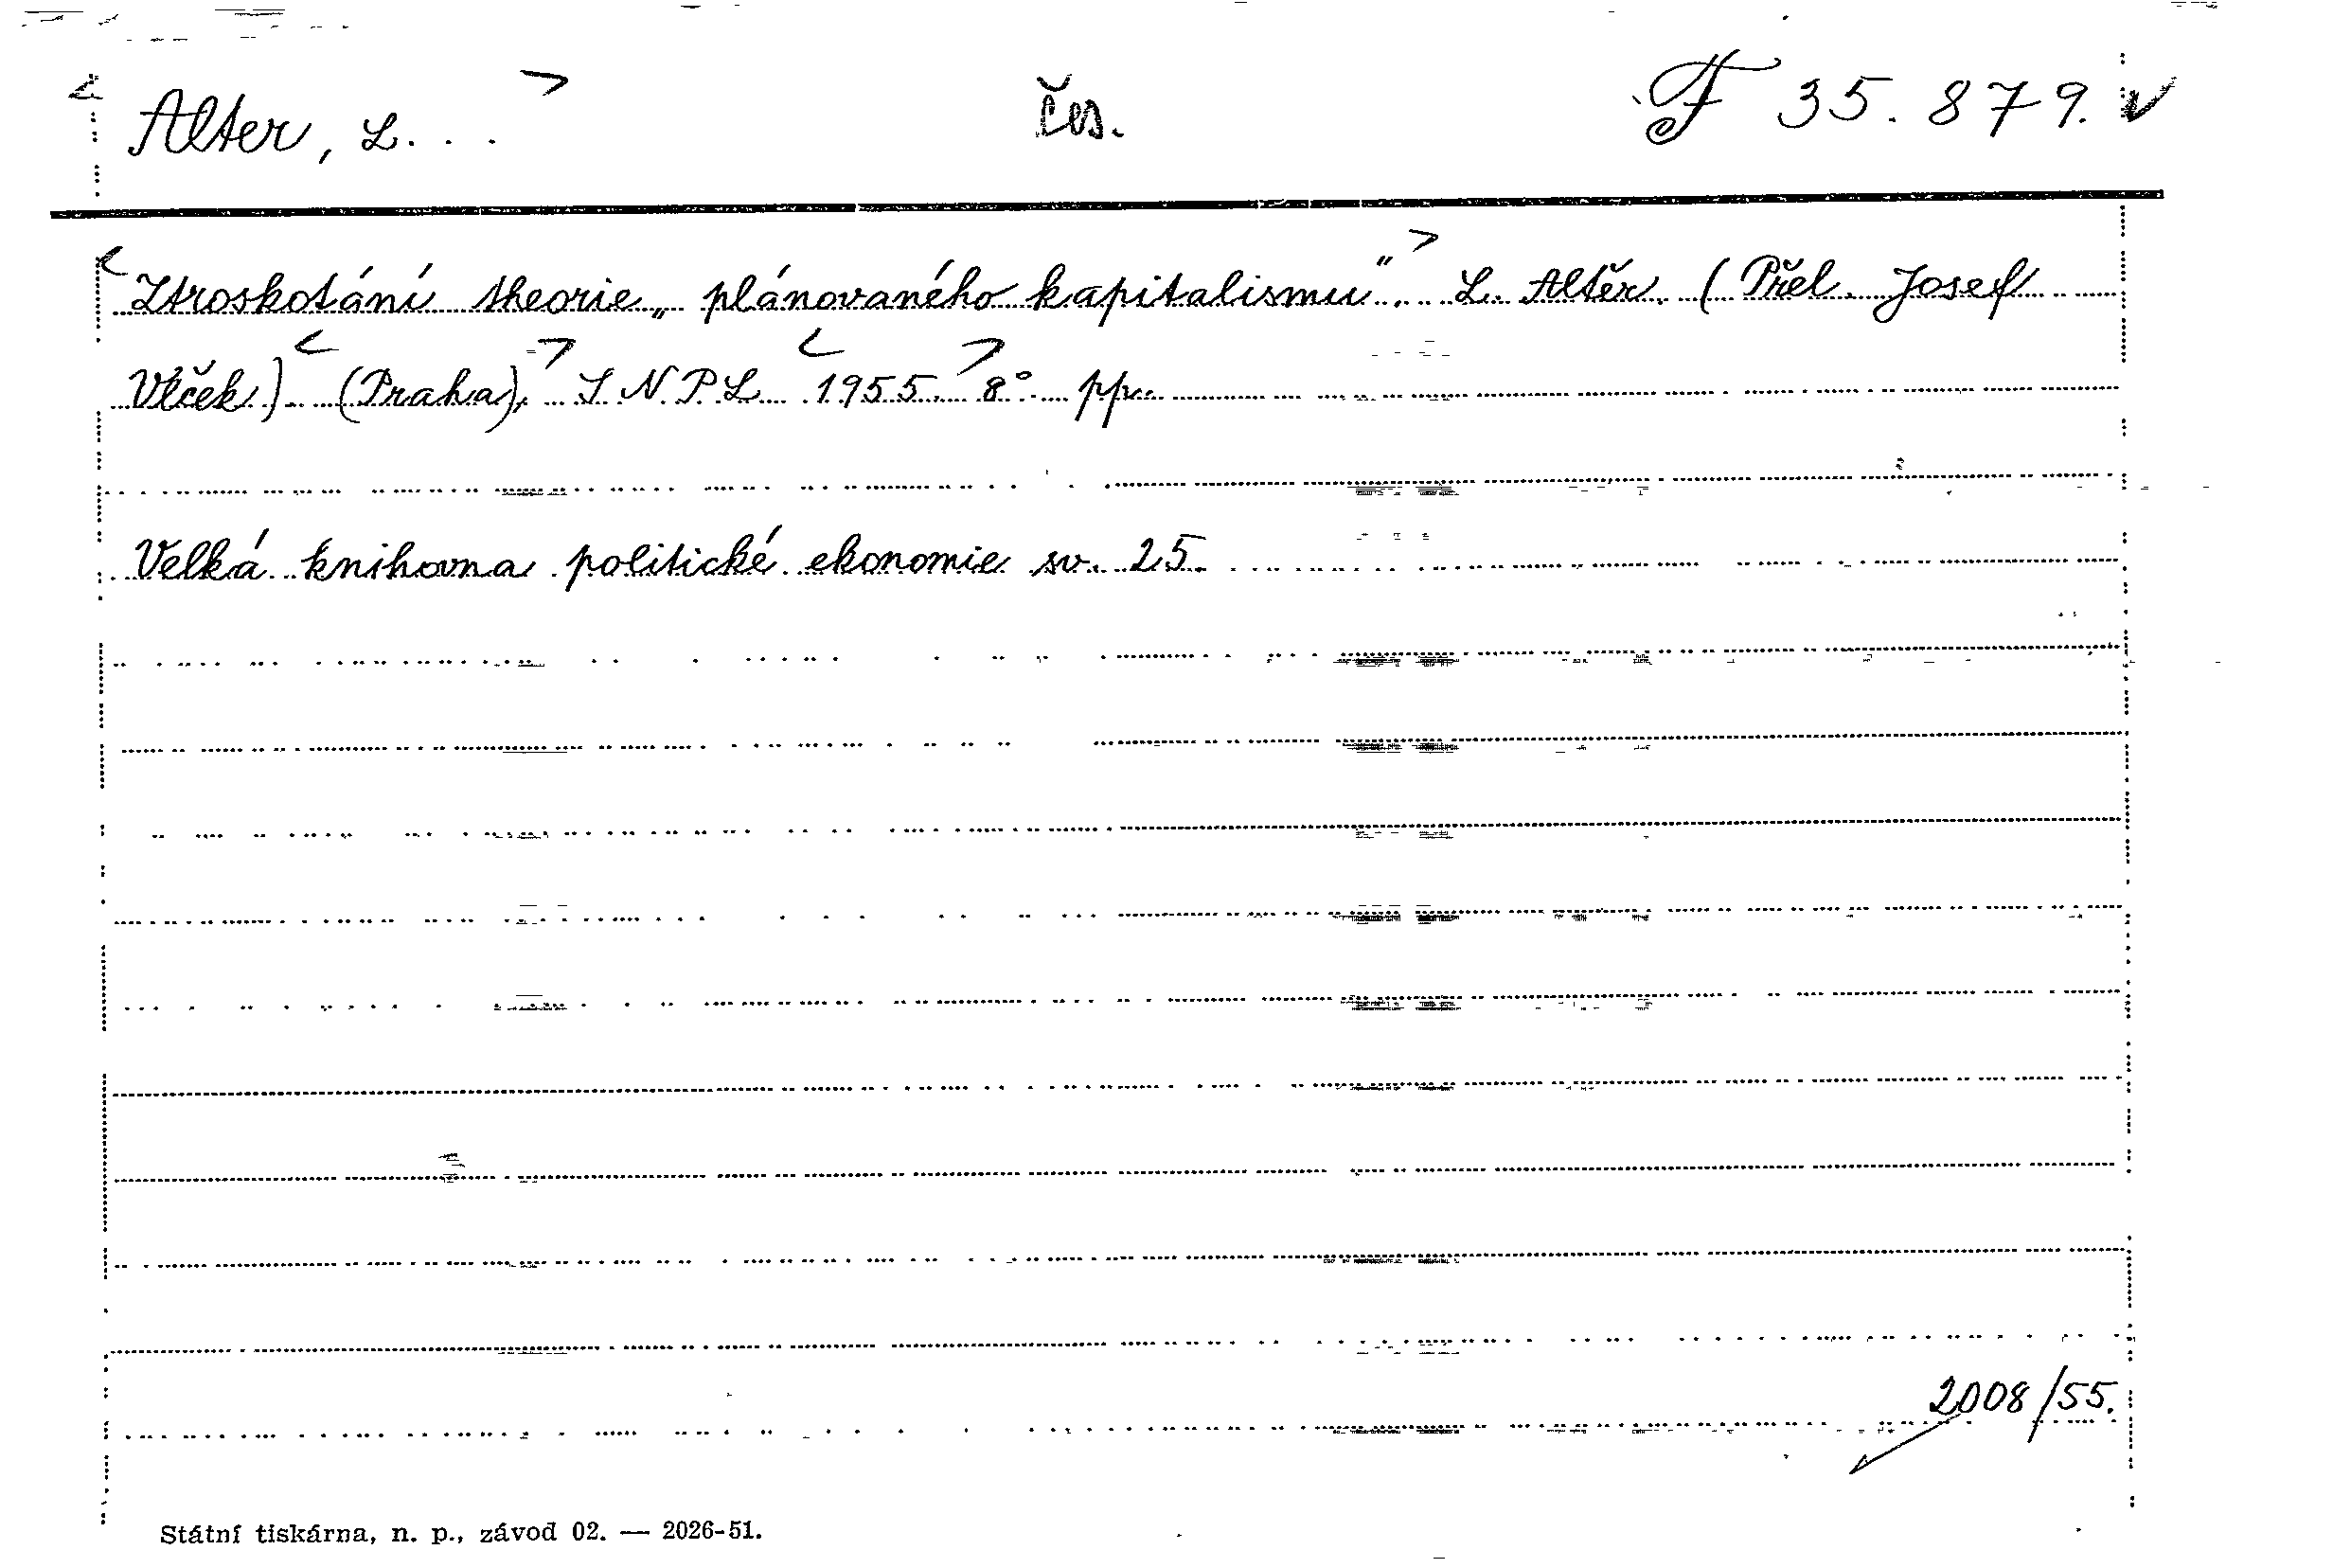 Alter, L... čes. F 35.879. v
Ztroskotání theorie „plánovaného kapitalismu". L. Altěr. (Přel. Josef
Vlček) (Praha), S N P L 1955. 8° pp.
Velká knihovna politické ekonomie sv. 25.
2008/55.
Státní tiskárna, n. p., závod 02. — 2026-51.